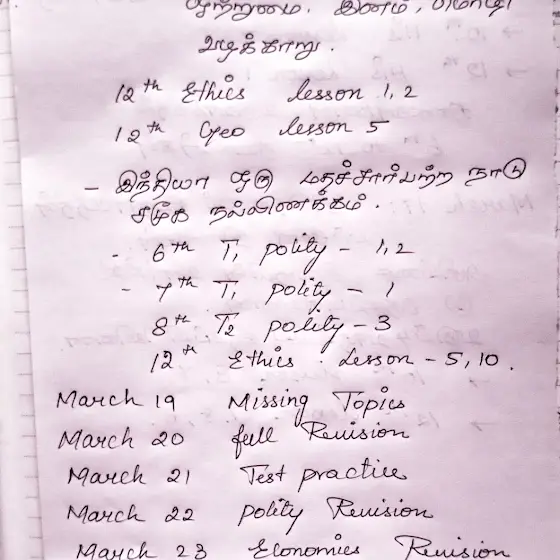 வேற்றுமை, இனம், மொழி
வழக்காறு.
12th Ethics lesson 1, 2
12th Geo lesson 5
- இந்தியா ஒரு மதச்சார்பற்ற நாடு
சமூக நல்லிணக்கம்.
- 6th T1 polity - 1, 2
- 7th T1 polity - 1
8th T2 polity - 3
12th Ethics . Lesson - 5, 10.
March 19 Missing Topics
March 20 full Revision
March 21 Test practice
March 22 polity Revision
March 23 Economics Revision